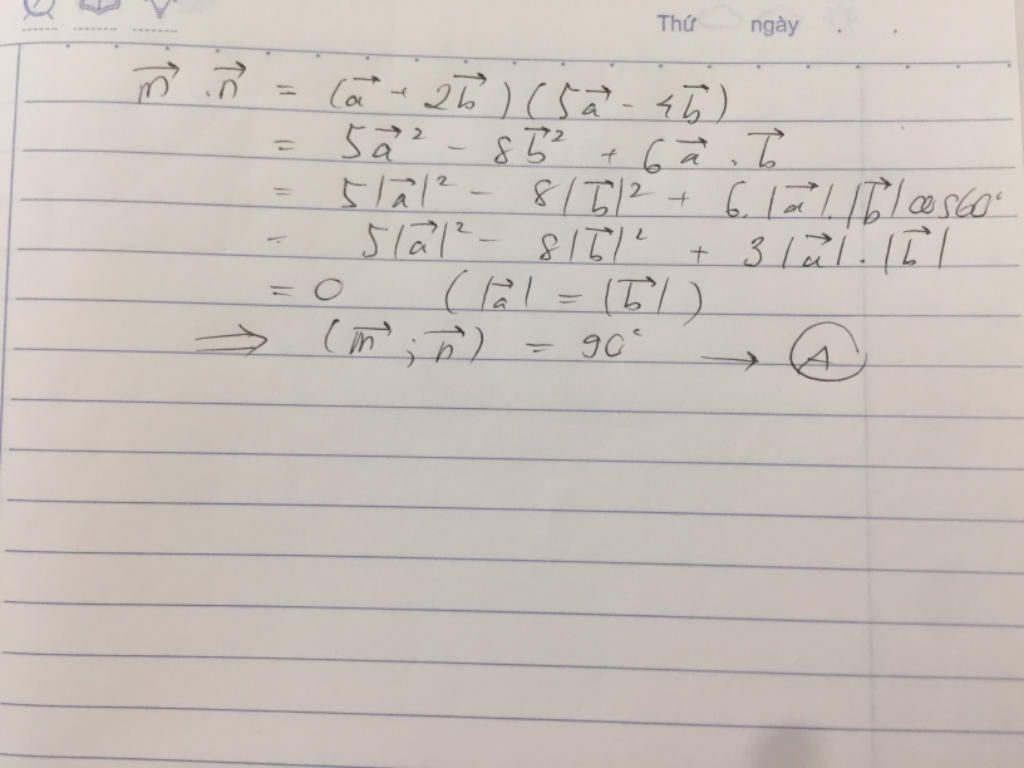 Thứ ngày
m⃗ . n⃗ = (a⃗ + 2b⃗)(5a⃗ - 4b⃗)
= 5a⃗² - 8b⃗² + 6a⃗ . b⃗
= 5|a⃗|² - 8|b⃗|² + 6.|a⃗|.|b⃗| cos60°
= 5|a⃗|² - 8|b⃗|² + 3|a⃗|.|b⃗|
= 0 (|a⃗| = |b⃗|)
⇒ (m⃗ ; n⃗) = 90° → A